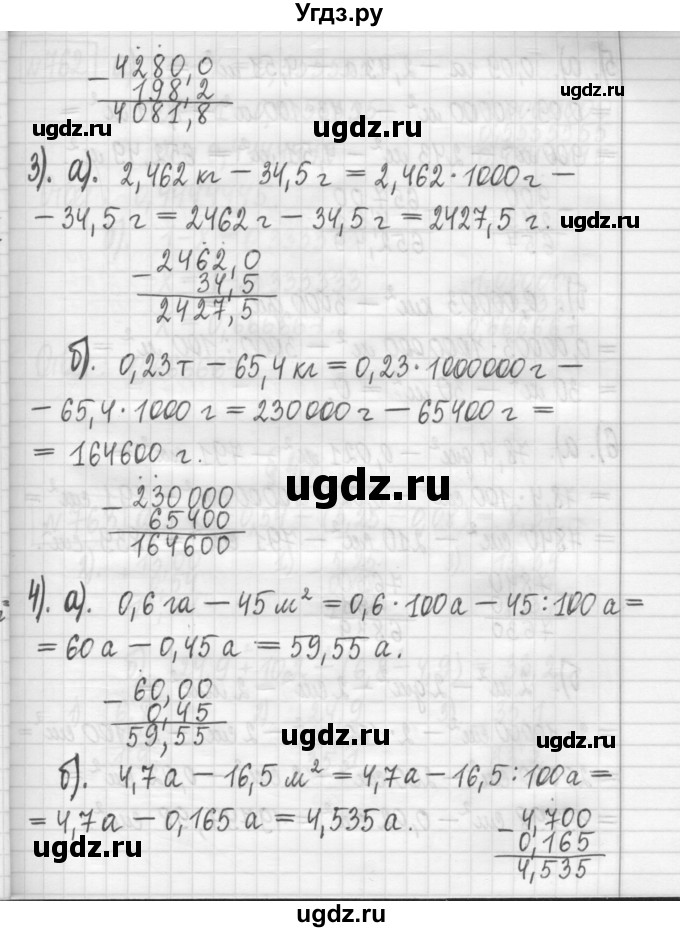 Угдз.ру
- 4280,0
198,2
4081,8
ugdz.ru ugdz.ru ugdz.ru
3). а). 2,462 кг − 34,5 г = 2,462·1000 г −
− 34,5 г = 2462 г − 34,5 г = 2427,5 г.
ugdz.ru
- 2462,0
34,5
2427,5
б). 0,23 т − 65,4 кг = 0,23·1000000 г −
− 65,4·1000 г = 230000 г − 65400 г =
= 164600 г.
ugdz.ru
- 230000
65400
164600
4). а). 0,6 га − 45 м² = 0,6·100 а − 45:100 а =
= 60 а − 0,45 а = 59,55 а.
- 60,00
0,45
59,55
ugdz.ru ugdz.ru
б). 4,7 а − 16,5 м² = 4,7 а − 16,5:100 а =
= 4,7 а − 0,165 а = 4,535 а.
- 4,700
0,165
4,535
ugdz.ru ugdz.ru
ugdz.ru